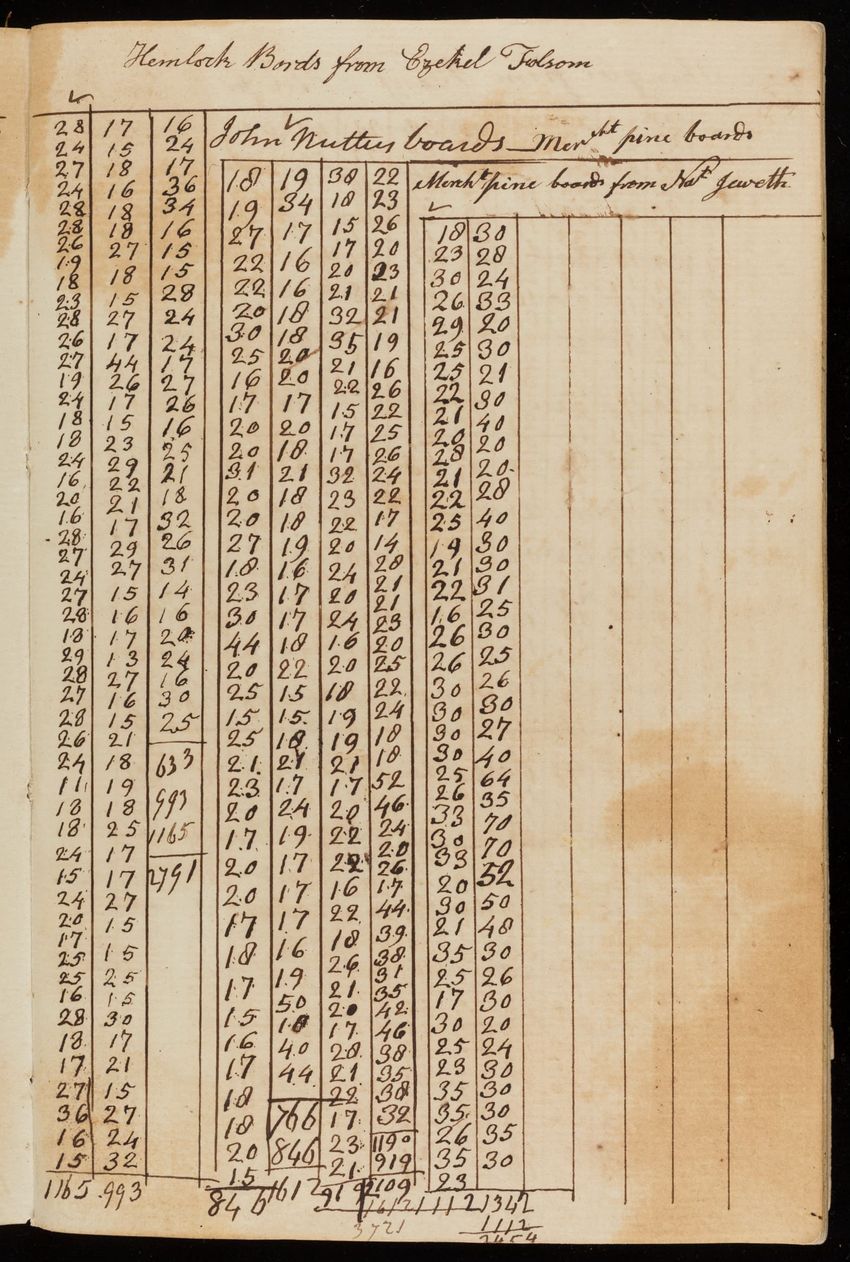 Hemlock Bords from Ezekel Folsom
28
24
27
24
28
28
26
19
18
23
28
26
27
19
24
18
18
24
16
20
16
28
27
24
27
28
18
29
28
27
28
26
24
11
18
18
24
15
24
20
17
25
25
16
28
18
17
27
36
16
15
1165
17
15
18
16
18
18
27
18
15
27
17
44
26
17
15
23
29
22
21
17
29
27
15
16
17
13
27
16
15
21
18
19
18
25
17
17
27
15
15
25
15
30
17
21
15
27
24
32
993
16
24
17
36
34
16
15
15
28
24
24
17
27
26
16
25
21
18
32
26
31
14
16
20
24
16
30
25
633
993
1165
2791
John Nuttus boards Mercht pine boards
18
19
27
22
22
20
30
25
16
17
20
20
31
20
20
27
18
23
30
44
20
25
15
25
21
23
20
17
20
20
17
18
17
15
16
17
18
18
20
15
846
19
34
17
16
16
18
18
20
20
17
20
18
21
18
18
19
16
17
17
18
22
15
15
18
21
17
24
19
17
17
17
16
19
50
18
40
44
766
846
1612
38
18
15
17
20
21
32
35
21
22
15
17
17
32
23
22
20
24
20
24
16
20
18
19
19
21
17
20
22
22
16
22
18
26
21
20
17
28
21
22
17
23
21
919
22
23
26
20
23
21
21
19
16
26
22
25
26
24
22
17
14
28
21
21
23
20
25
22
24
18
18
52
46
24
20
26
17
44
39
38
31
35
42
46
38
35
38
32
1190
919
2109
1612
3721
Mercht pine boards from Nat Jewett
18
23
30
26
29
25
25
22
21
20
28
21
22
25
19
21
22
16
26
26
30
30
30
30
25
26
33
30
33
20
30
21
35
25
17
30
25
23
35
35
26
35
23
1112
30
28
24
33
20
30
21
30
40
20
20
28
40
30
30
31
25
30
25
26
30
27
40
64
35
70
70
52
50
48
30
26
30
20
24
30
30
30
35
30
1342
1112
2454